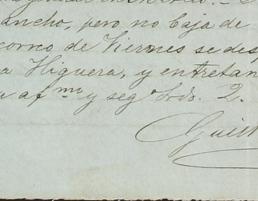 ancho, pero no baja de
correo de Viernes se desp
a Higuera, y entretan
af.mo y seg